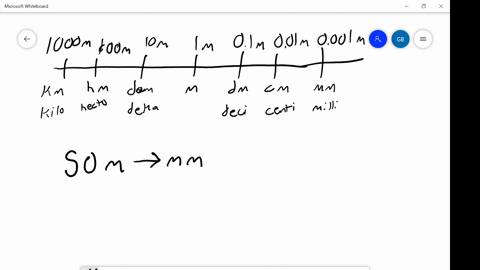 Microsoft Whiteboard
1000m 100m 10m 1m 0.1m 0.01m 0.001m
GB
Km hm dam m dm cm mm
Kilo hecto deka deci centi milli
50 m → mm